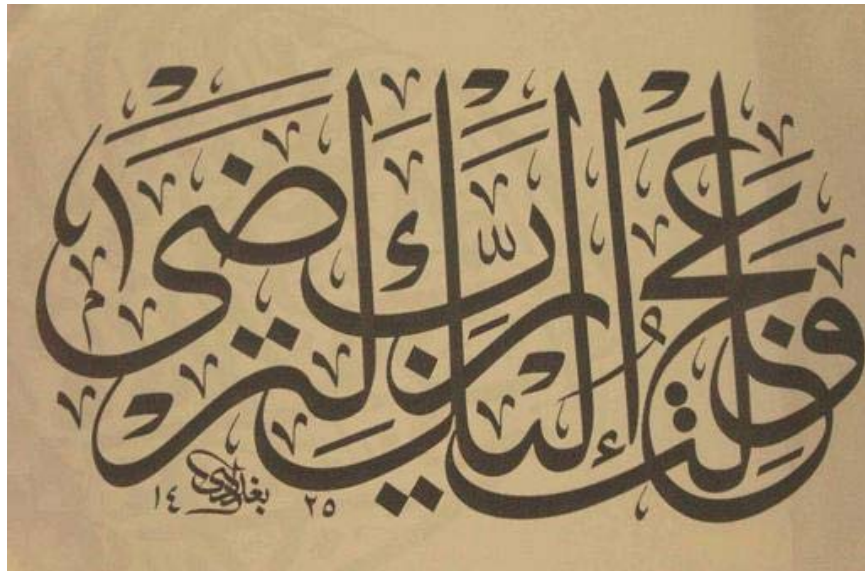 وَعَجِلْتُ إِلَيْكَ رَبِّ لِتَرْضَىٰ
بغدادي
١٤٢٥